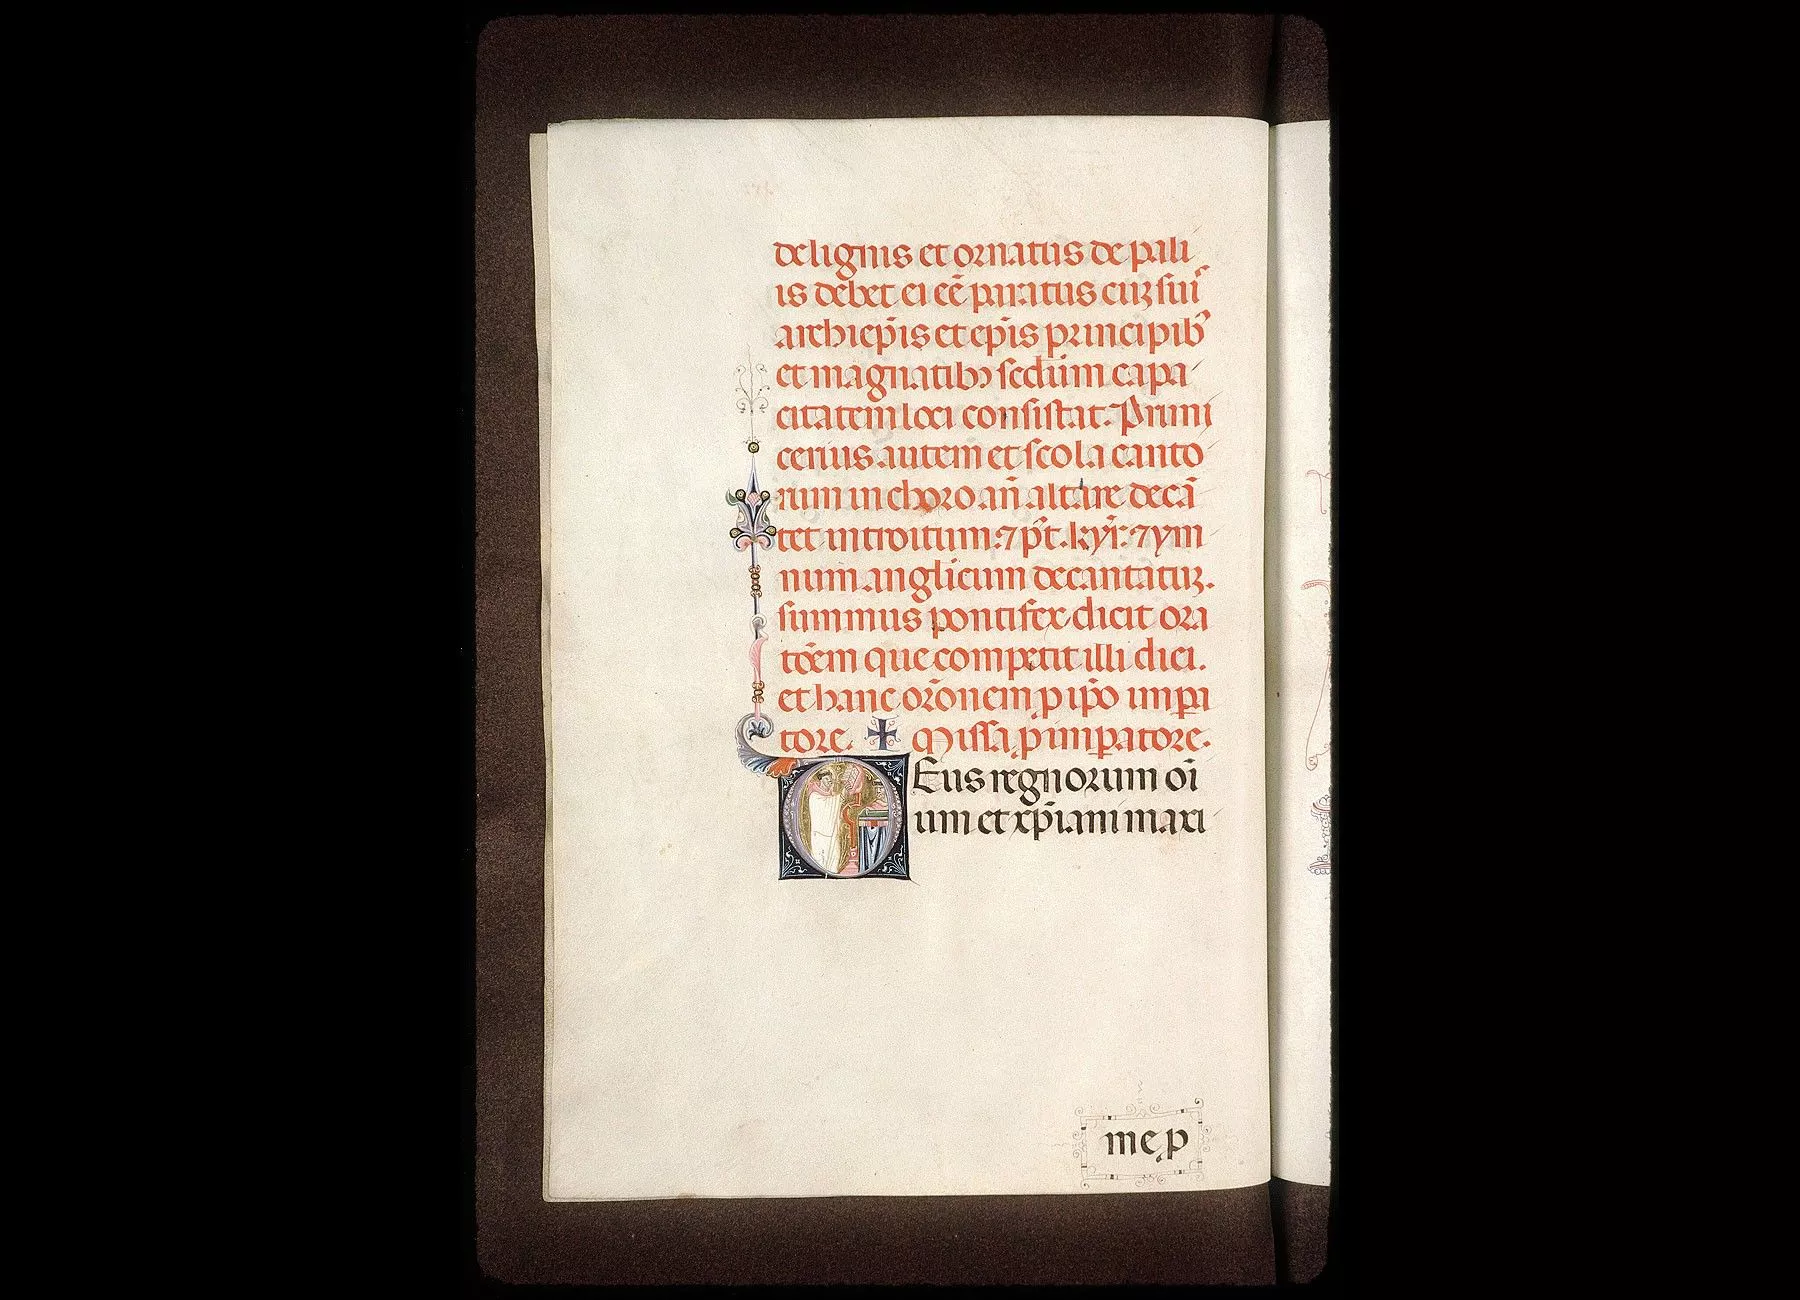 de lignis et ornatus de pali
is debet ei eē paratus cuꝫ suis
archiep̄is et ep̄is principibꝰ
et magnatibꝫ sedum capa
citatem loci consistat. Primi
cerius autem et scola canto
rum in choro an̄ altare decā
tet introitum. ⁊ p̄t. kyr̄. ⁊ ym
num anglicum decantatur.
summus pontifex dicit ora
tōem que competit illi diei.
et hanc orōnem ꝓ ip̄o impa
tore. ✠ Missa ꝓ imꝑatore.
DEus regnorum oī
um et xp̄iani maxi
me ꝓ